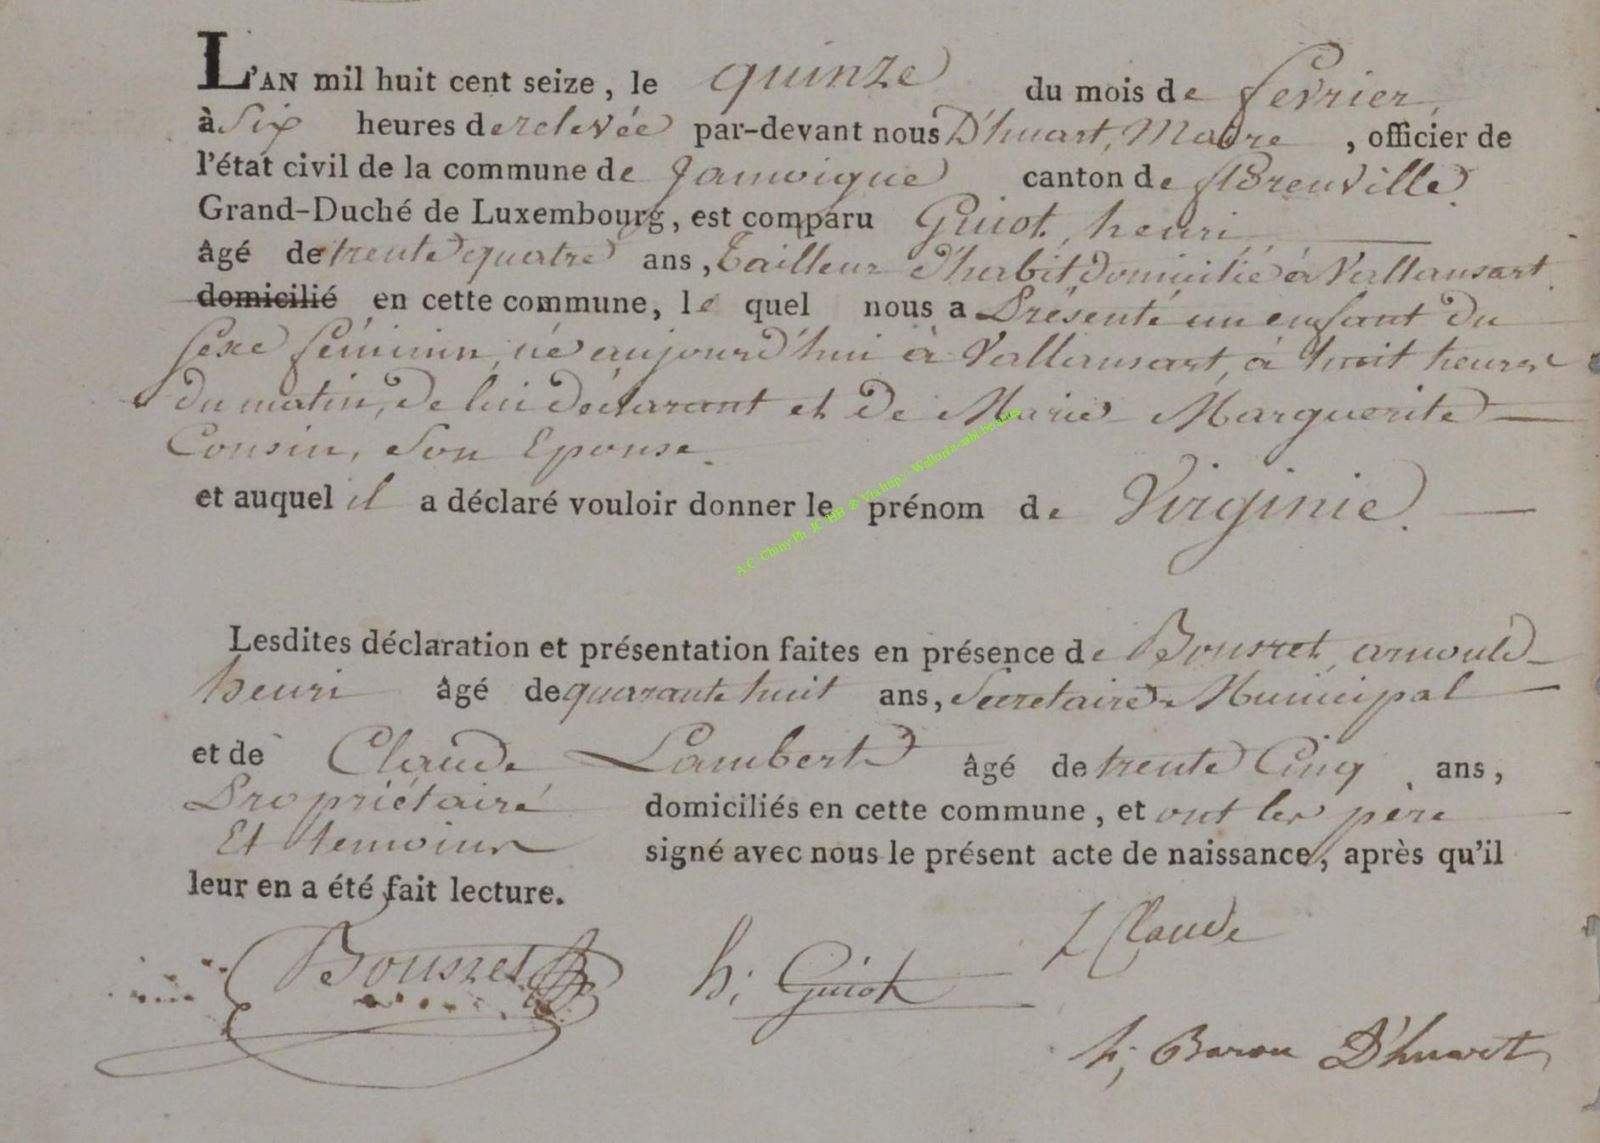 L'AN mil huit cent seize, le quinze du mois de fevrier,
à Six heures de relevée par-devant nous D'huart, Maire, officier de
l'état civil de la commune de Jamoigne canton de florenville
Grand-Duché de Luxembourg, est comparu Guiot, henri
âgé de trente quatre ans, Tailleur d'habit, domicilié à Vallansart
domicilié en cette commune, le quel nous a Présenté un enfant du
sexe féminin, né aujourd'hui à Vallansart, à huit heures
du matin, de lui déclarant et de Marie Marguerite
Cousin, Son Epouse.
et auquel il a déclaré vouloir donner le prénom de Virginie.
A.C. Chiny Ph. JC HB © Via http://Walloria-asbl.be
Lesdites déclaration et présentation faites en présence de Bousret, arnould
henri âgé de quarante huit ans, Secretaire Municipal
et de Claude Lambert âgé de trente Cinq ans,
Propriétaire domiciliés en cette commune, et ont les père
Et temoins signé avec nous le présent acte de naissance, après qu'il
leur en a été fait lecture.
Bousret h; Guiot L Claude
h; Baron D'huart